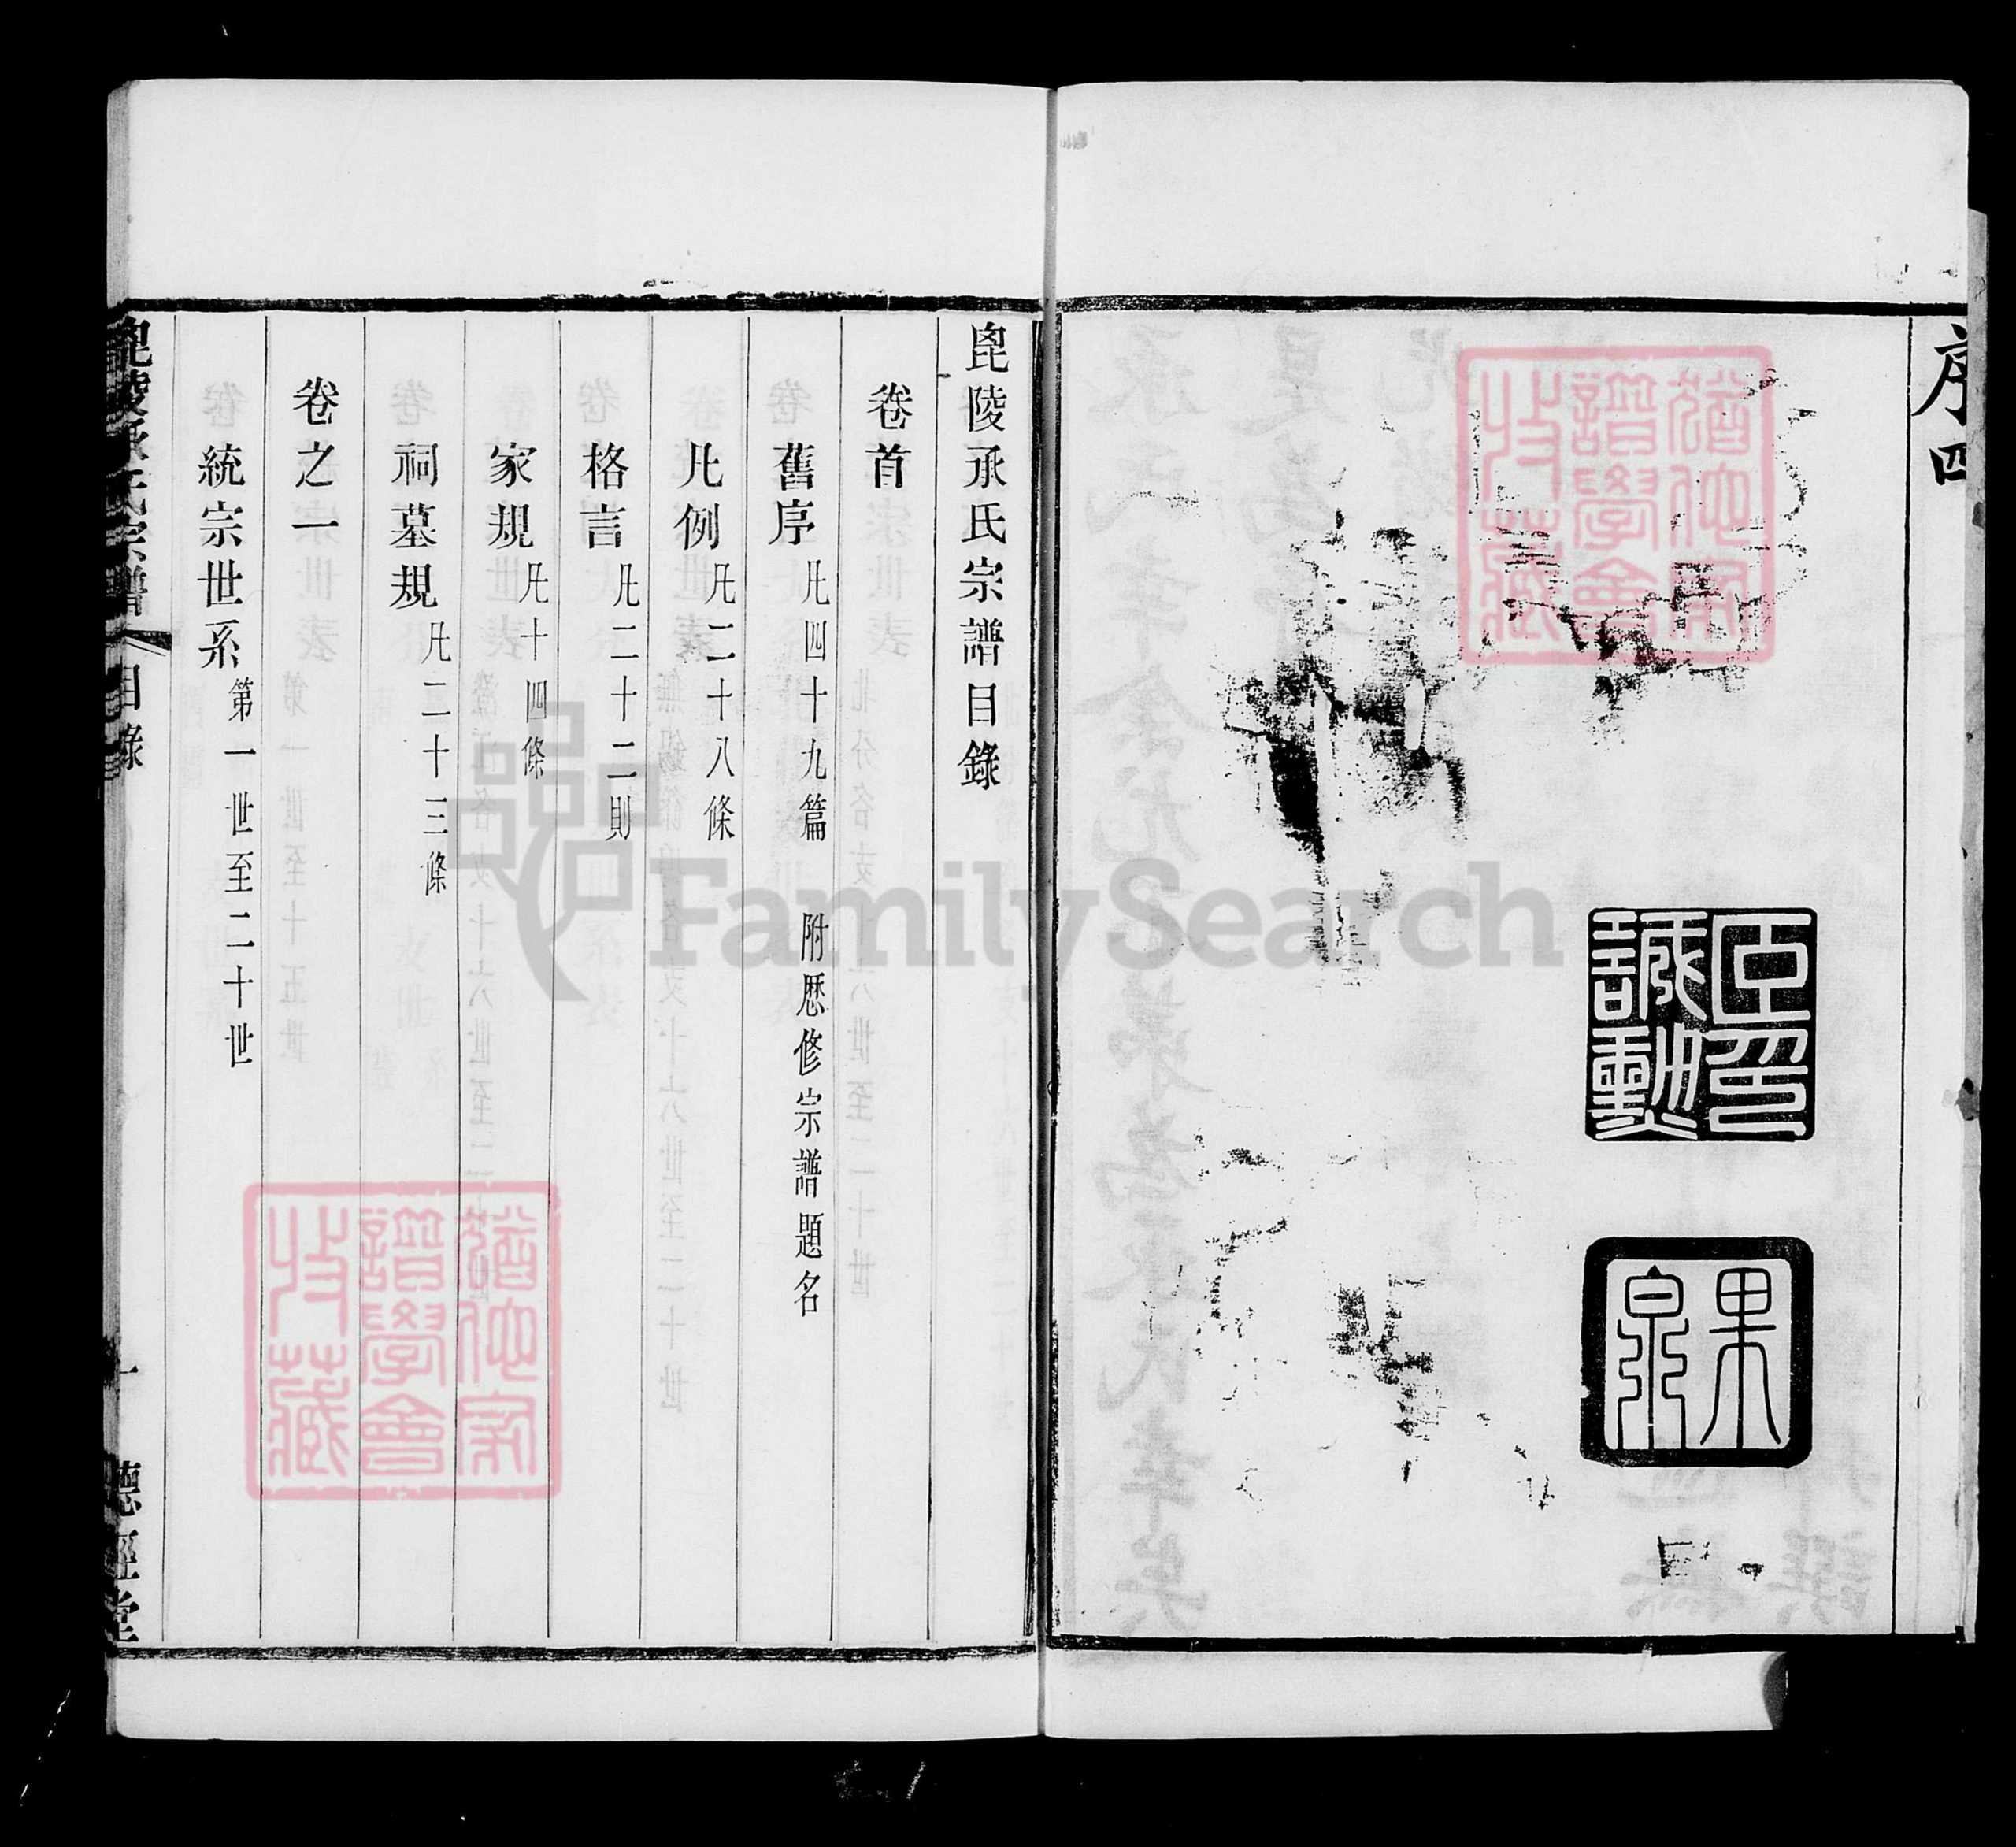 序四
果泉
毘陵承氏宗譜目錄
卷首
舊序 凡四十九篇 附歷修宗譜題名
凡例 凡二十八條
格言 凡二十二則
家規 凡十四條
祠墓規 凡二十三條
卷之一
統宗世系 第一世至二十世
毘陵承氏宗譜 目錄 一 德經堂
譜學會
收藏
FamilySearch